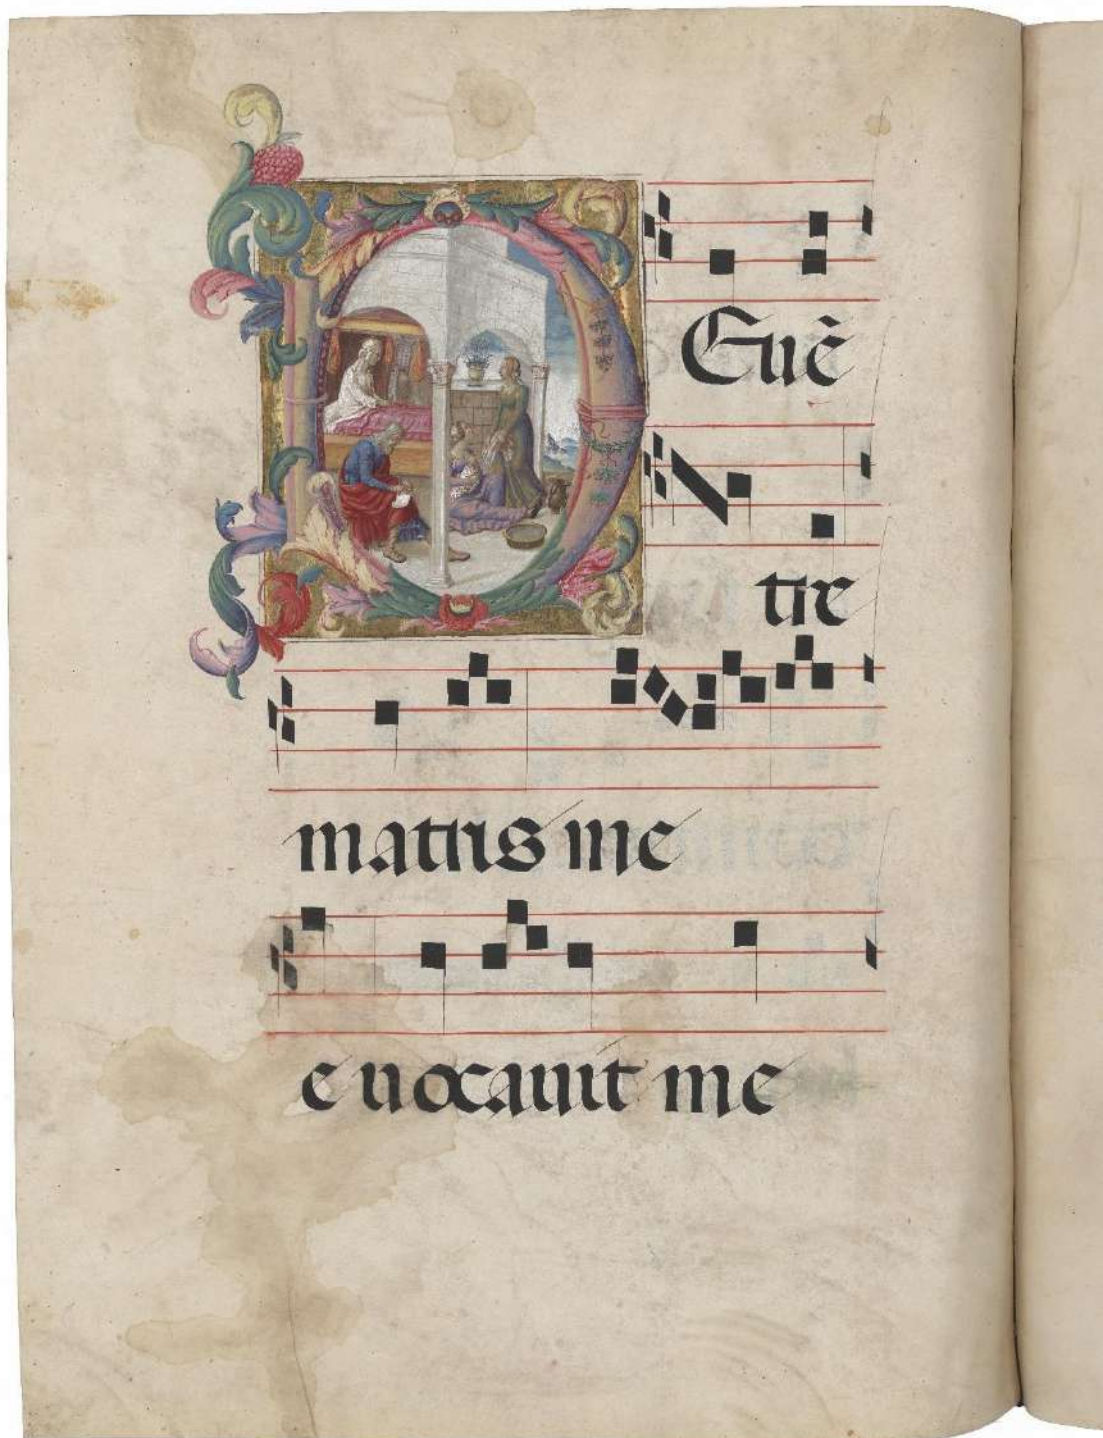 DE uē
tre
matris me
e uocauit me